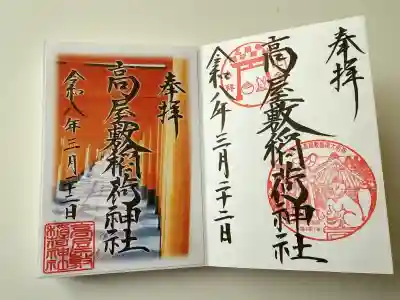 奉拝
高屋敷稲荷神社
令和八年三月二十二日
高屋敷稲荷神社
奉拝
高屋敷稲荷神社
令和八年三月二十二日